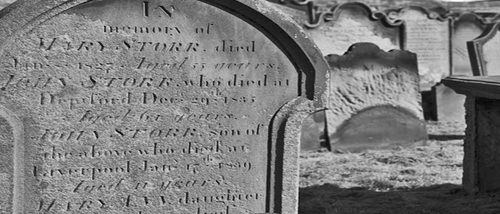 IN
memory of
MARY STORR, died
1827. Aged 55 years.
JOHN STORR, who died at
Deptford Dec. 29th 1835
Aged 61 years.
JOHN STORR, son of
the above who died at
Liverpool Jan.
Aged years.
MARY ANN daughter
died